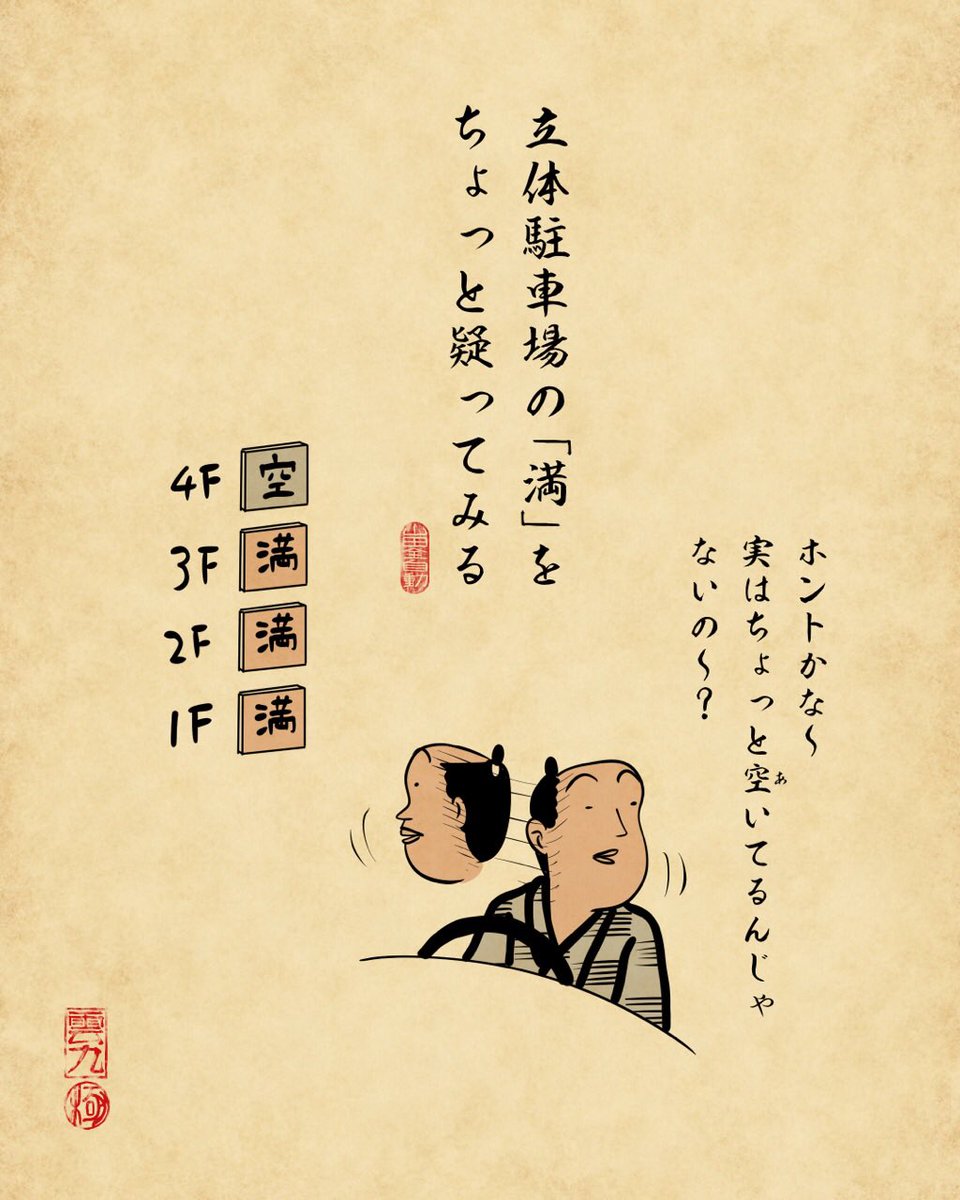 立体駐車場の「満」を
ちょっと疑ってみる
ホントかな〜
実はちょっと空いてるんじゃ
あ
ないの〜?
4F 空
3F 満
2F 満
1F 満